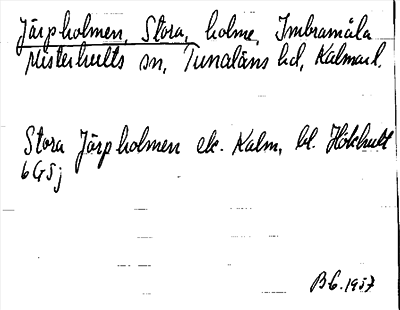 Järpholmen, Stora, holme, Imbramåla
Misterhults sn, Tunaläns hd, Kalmar l.
Stora Järpholmen ek. Kalm, bl. Hökhult
6G5j
BG. 1957